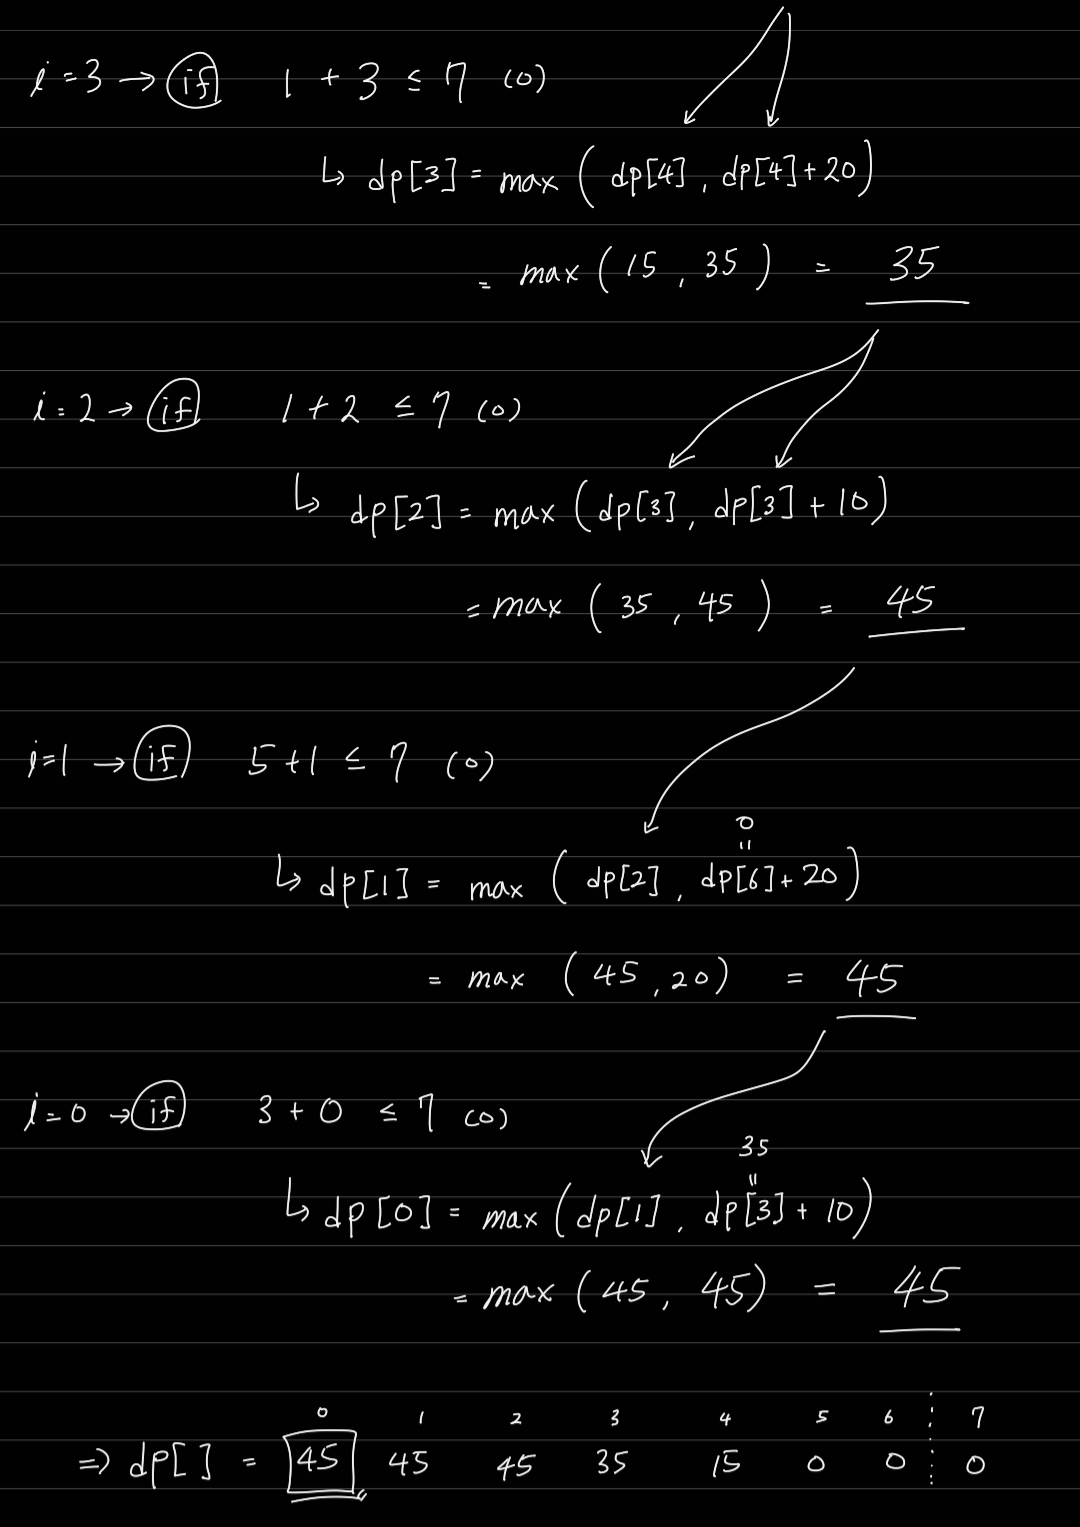 i=3 → if 1 + 3 ≤ 7 (o)
↳ dp[3] = max ( dp[4], dp[4]+20 )
= max ( 15, 35 ) = 35
i=2 → if 1+2 ≤ 7 (o)
↳ dp[2] = max ( dp[3], dp[3] + 10 )
= max ( 35, 45 ) = 45
i=1 → if 5+1 ≤ 7 (o)
0
"
↳ dp[1] = max ( dp[2], dp[6]+20 )
= max ( 45, 20 ) = 45
i=0 → if 3 + 0 ≤ 7 (o)
35
"
↳ dp[0] = max ( dp[1], dp[3] + 10 )
= max ( 45, 45 ) = 45
0 1 2 3 4 5 6 7
⇒ dp[ ] = 45 45 45 35 15 0 0 0